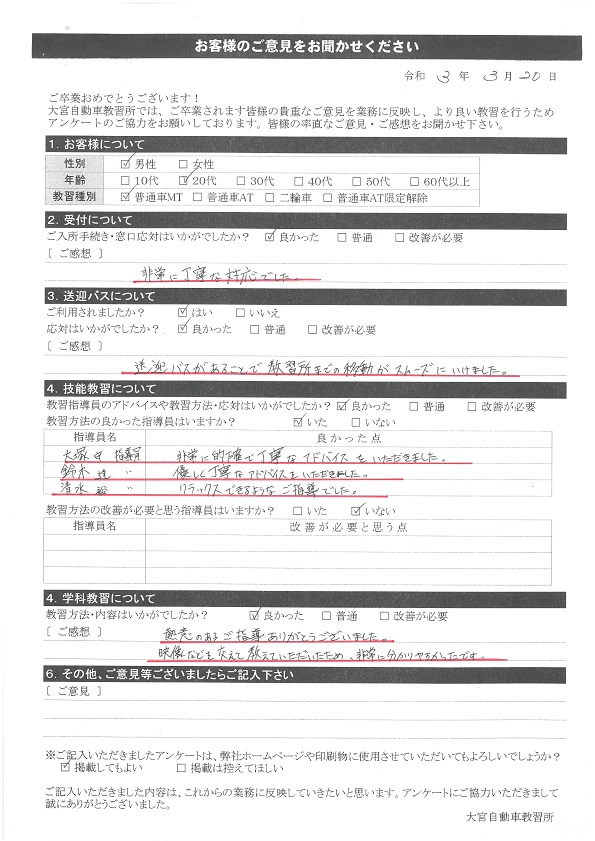 お客様のご意見をお聞かせください
令和 3 年 3 月 20 日
ご卒業おめでとうございます！
大宮自動車教習所では、ご卒業されます皆様の貴重なご意見を業務に反映し、より良い教習を行うため
アンケートのご協力をお願いしております。皆様の率直なご意見・ご感想をお聞かせ下さい。
1. お客様について
性別 ☑男性 □女性
年齢 □10代 ☑20代 □30代 □40代 □50代 □60代以上
教習種別 ☑普通車MT □普通車AT □二輪車 □普通車AT限定解除
2. 受付について
ご入所手続き・窓口応対はいかがでしたか？ ☑良かった □普通 □改善が必要
〔 ご感想 〕
非常に丁寧な対応でした。
3. 送迎バスについて
ご利用されましたか？ ☑はい □いいえ
応対はいかがでしたか？ ☑良かった □普通 □改善が必要
〔 ご感想 〕
送迎バスがあることで教習所までの移動がスムーズにいけました。
4. 技能教習について
教習指導員のアドバイスや教習方法・応対はいかがでしたか？ ☑良かった □普通 □改善が必要
教習方法の良かった指導員はいますか？ ☑いた □いない
指導員名 良かった点
大塚 守 指導員 非常に的確で丁寧なアドバイスをいただきました。
鈴木 〃 優しく丁寧なアドバイスをいただきました。
清水 〃 リラックスできるようなご指導でした。
教習方法の改善が必要と思う指導員はいますか？ □いた ☑いない
指導員名 改善が必要と思う点
4. 学科教習について
教習方法・内容はいかがでしたか？ ☑良かった □普通 □改善が必要
〔 ご感想 〕
熱意のあるご指導ありがとうございました。
映像なども交えて教えていただいたため、非常に分かりやすかったです。
6. その他、ご意見等ございましたらご記入下さい
〔 ご意見 〕
※ご記入いただきましたアンケートは、弊社ホームページや印刷物に使用させていただいてもよろしいでしょうか？
☑掲載してもよい □掲載は控えてほしい
ご記入いただきました内容は、これからの業務に反映していきたいと思います。アンケートにご協力いただきまして
誠にありがとうございました。
大宮自動車教習所